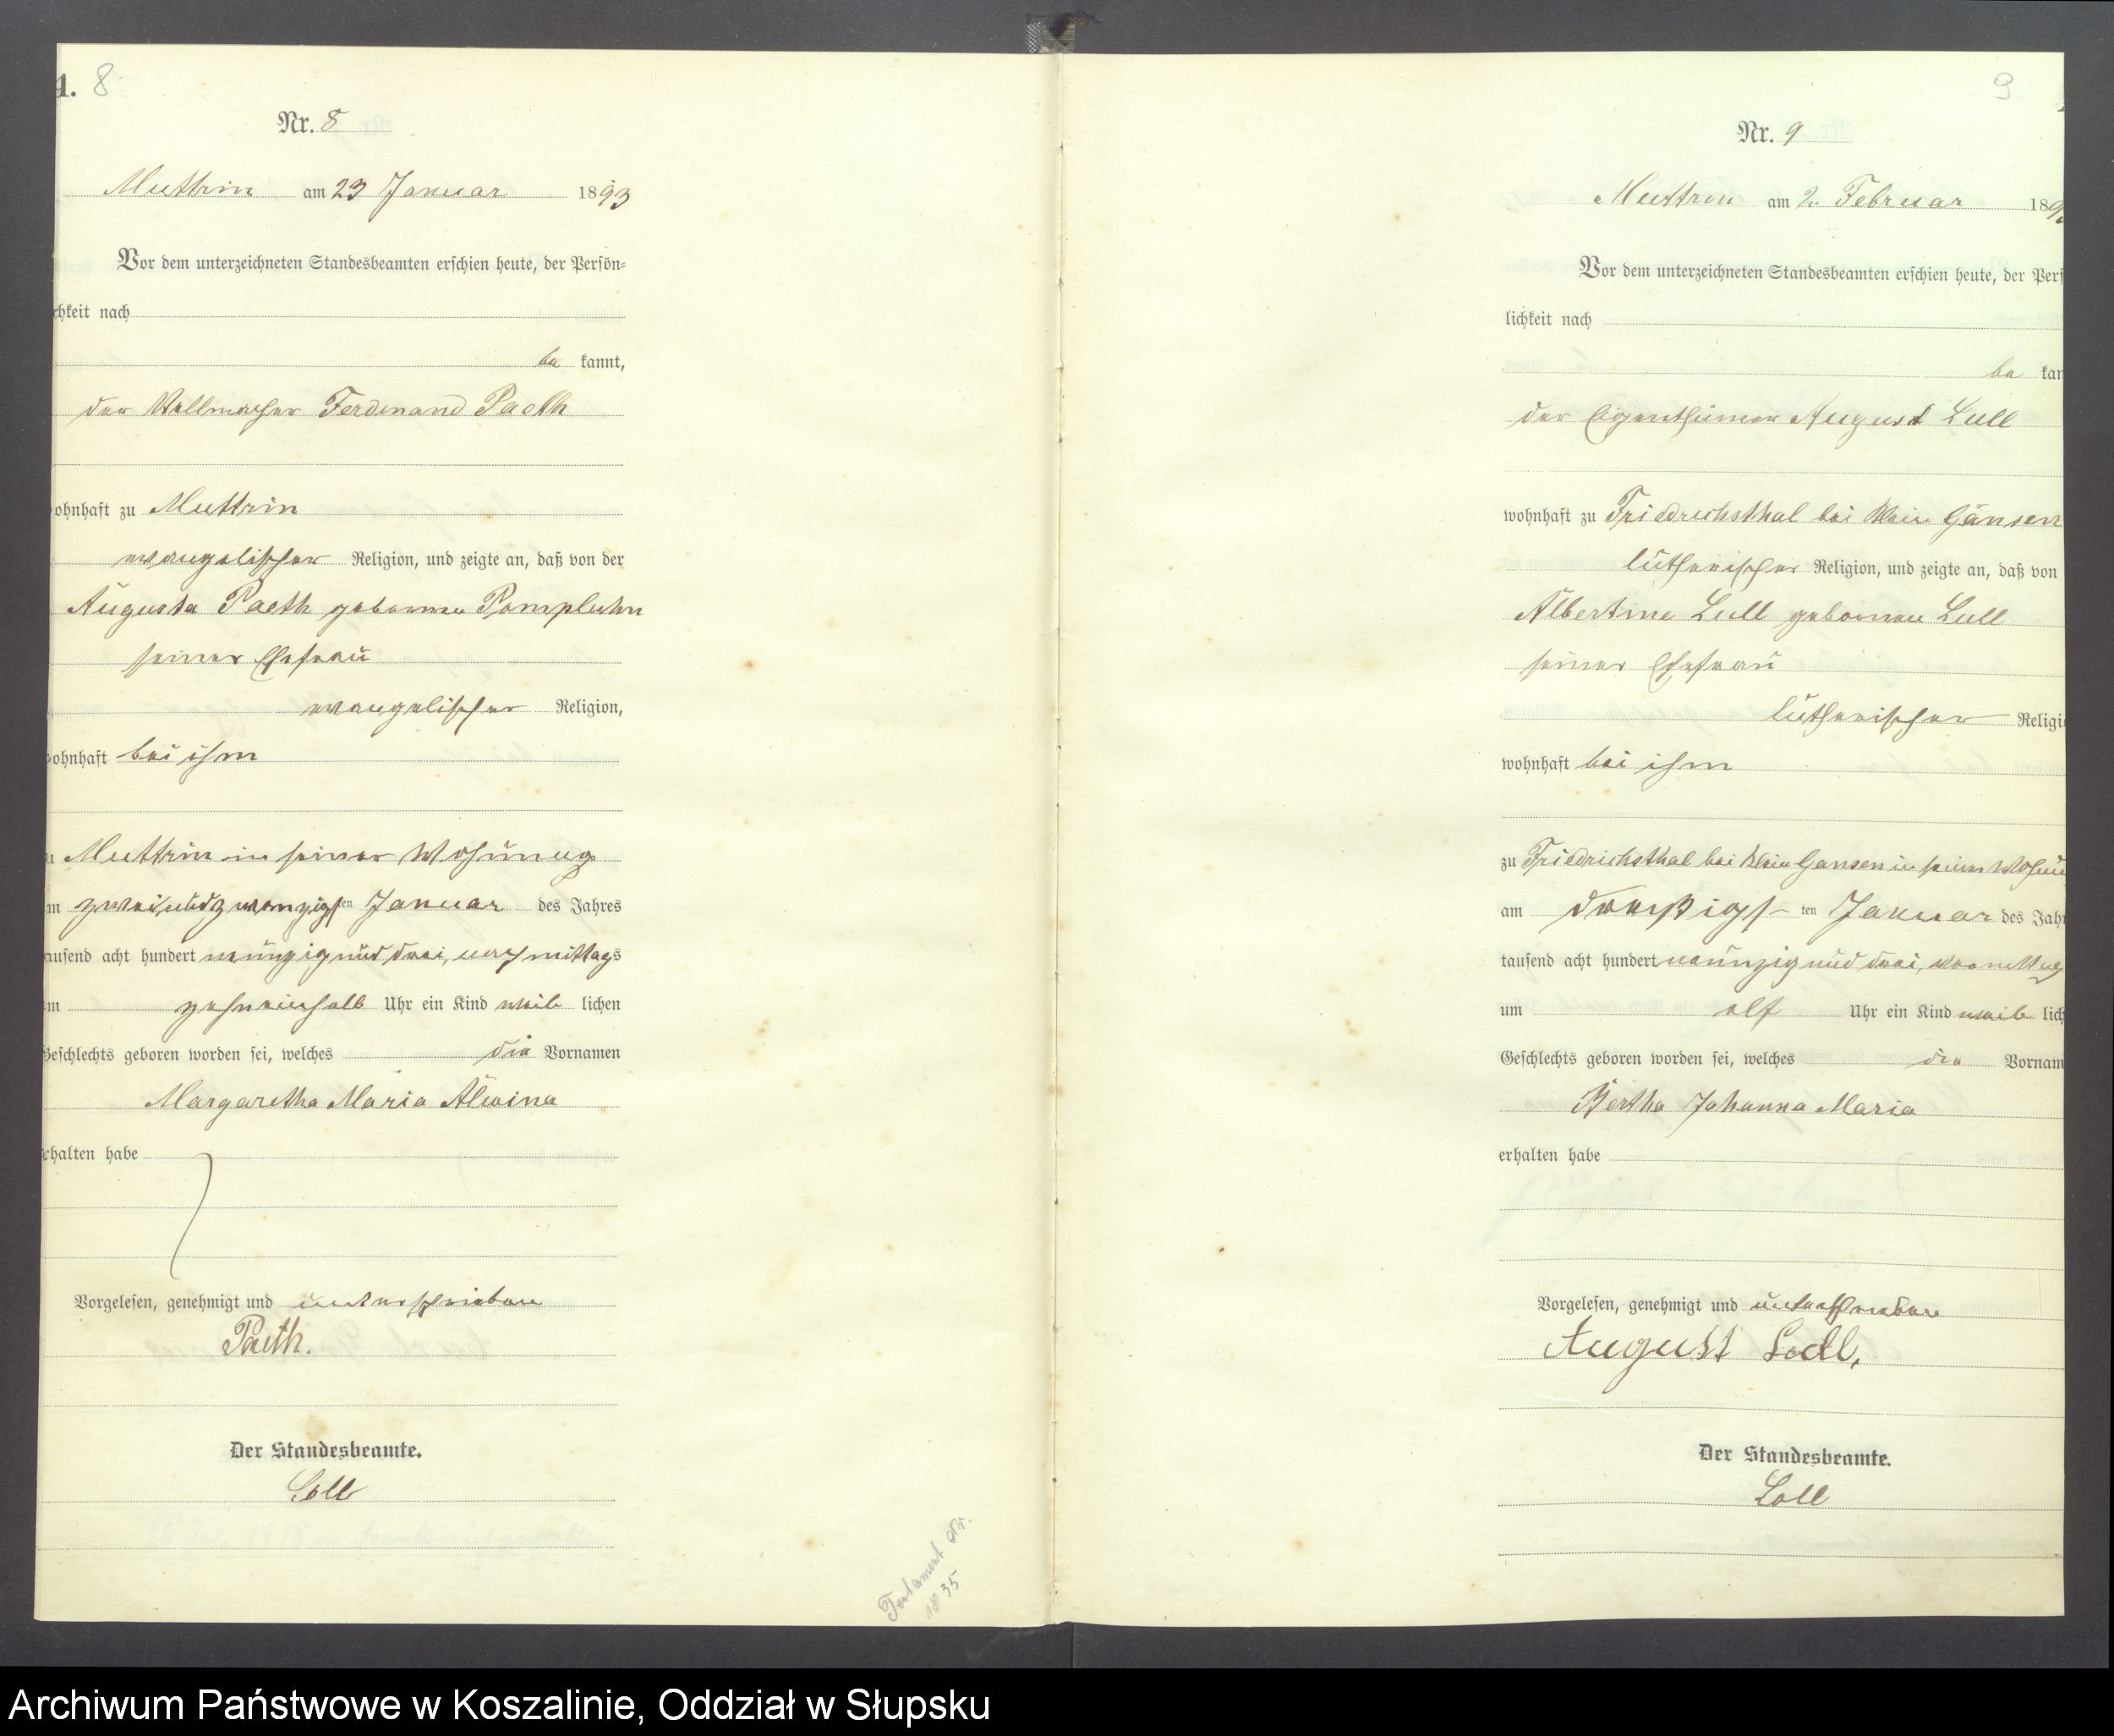 A. 8
Nr. 8
Muttrin am 23 Januar 1893
Vor dem unterzeichneten Standesbeamten erschien heute, der Persön=
chkeit nach
be kannt,
der Ferdinand Paeth
ohnhaft zu Muttrin
evangelischer Religion, und zeigte an, daß von der
Augusta Paeth geborenen Pompluhn
seiner Ehefrau
evangelischer Religion,
ohnhaft bei ihm
u Muttrin in seiner Wohnung
m zweiundzwanzigsten Januar des Jahres
ausend acht hundert neunzig und drei, nachmittags
m zehneinhalb Uhr ein Kind weib lichen
Geschlechts geboren worden sei, welches die Vornamen
Margaretha Maria Alwina
rhalten habe
Vorgelesen, genehmigt und unterschrieben
Paeth.
Der Standesbeamte.
Loll
Testament Nr.
35
9
Nr. 9
Muttrin am 2. Februar 189
Vor dem unterzeichneten Standesbeamten erschien heute, der Pers
lichkeit nach
be kan
der Eigenthümer August Lull
wohnhaft zu Friedrichsthal bei Klein Gansen
lutherischer Religion, und zeigte an, daß von
Albertine Lull geborenen Lull
seiner Ehefrau
lutherischer Religi
wohnhaft bei ihm
zu Friedrichsthal bei Klein Gansen in seiner Wohnu
am dreißigsten Januar des Jahr
tausend acht hundert neunzig und drei, vormittag
um elf Uhr ein Kind weib lich
Geschlechts geboren worden sei, welches die Vornam
Bertha Johanna Maria
erhalten habe
Vorgelesen, genehmigt und unterschrieben
August Lull.
Der Standesbeamte.
Loll
Archiwum Państwowe w Koszalinie, Oddział w Słupsku